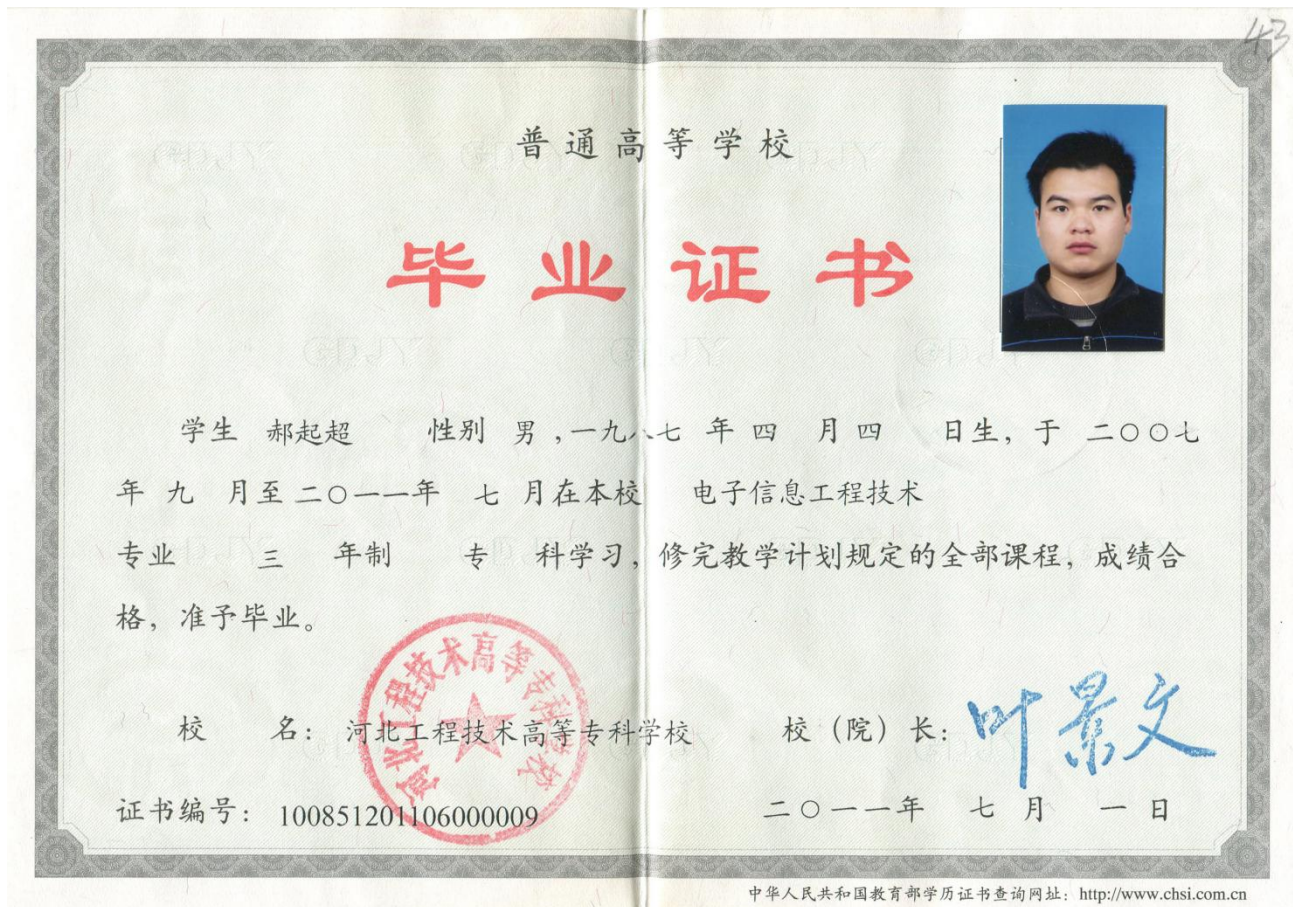 43
普通高等学校
毕业证书
学生 郝起超 性别 男 ,一九八七 年 四 月 四 日生, 于 二〇〇七
年 九 月至 二〇一一年 七 月在本校 电子信息工程技术
专业 三 年制 专 科学习, 修完教学计划规定的全部课程, 成绩合
格, 准予毕业。
河北工程技术高等专科学校
校 名: 河北工程技术高等专科学校 校(院)长: 叶景文
证书编号: 100851201106000009 二〇一一年 七 月 一 日
中华人民共和国教育部学历证书查询网址: http://www.chsi.com.cn